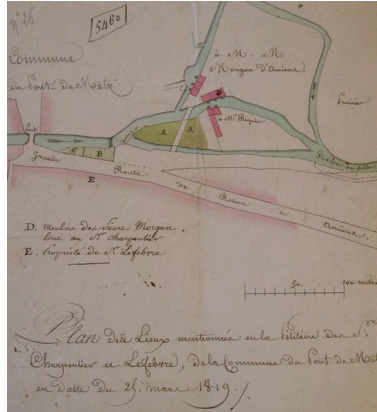 n° 26
5460
Commune
du Pont de Metz
à M. M.
Morgan d'Amiens
D
à Mr Riquier
Prairie
A
A
Pont
C
B
Rivière de Selle
Grande Route de Rouen à Amiens
E
D. moulins des Sieurs Morgan.
loué au Sr. Charpentier
E. Propriété du Sr. Lefebvre
50
100 mètres
Plan des Lieux mentionnés en la Pétition des Srs
Charpentier et Lefebvre, de la Commune du Pont de Metz
en date du 25 mars 1819.